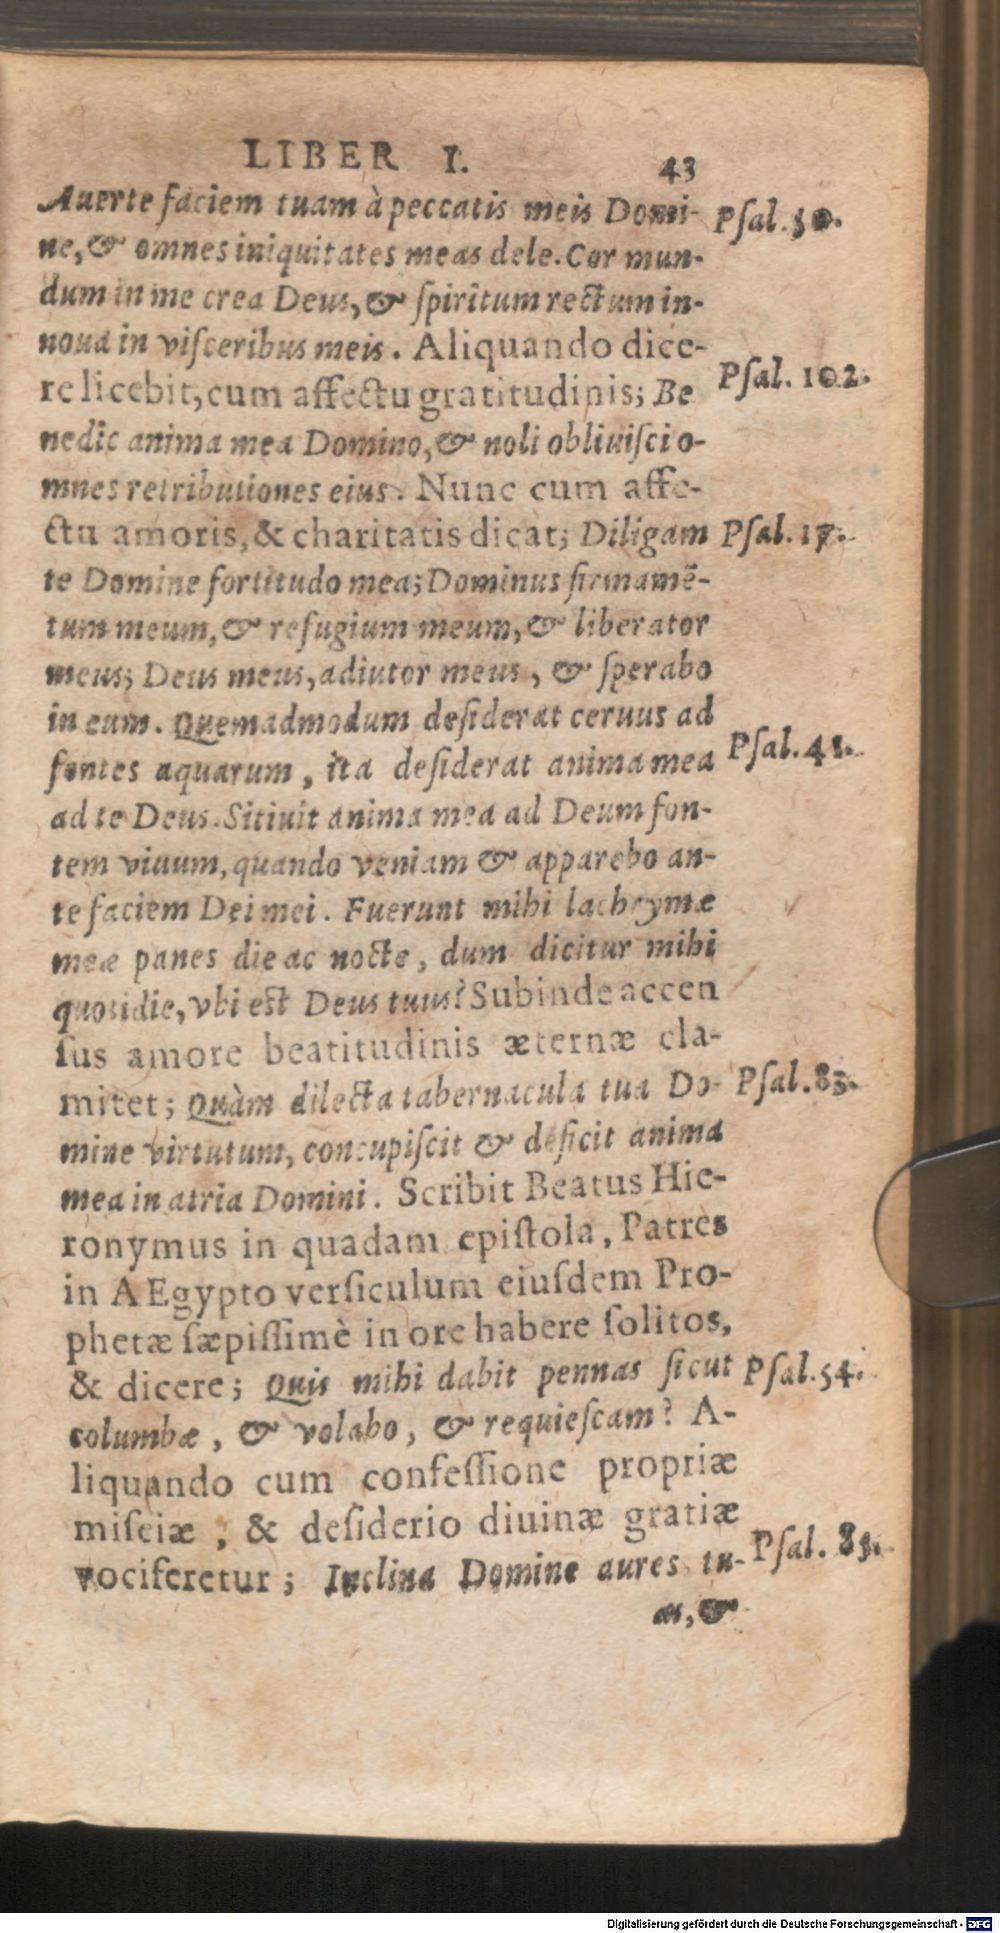 LIBER I. 43
Auerte faciem tuam à peccatis meis Domi- Psal. 50.
ne, & omnes iniquitates meas dele. Cor mun-
dum in me crea Deus, & ſpiritum rectum in-
noua in viſceribus meis. Aliquando dice-
re licebit, cum affectu gratitudinis; Be Psal. 102.
nedic anima mea Domino, & noli obliuiſci o-
mnes retributiones eius. Nunc cum affe-
ctu amoris, & charitatis dicat; Diligam Pſal. 17.
te Domine fortitudo mea; Dominus firmamē-
tum meum, & refugium meum, & liberator
meus; Deus meus, adiutor meus, & ſperabo
in eum. Quemadmodum deſiderat ceruus ad
fontes aquarum, ita deſiderat anima mea Pſal. 41.
ad te Deus. Sitiuit anima mea ad Deum fon-
tem viuum, quando veniam & apparebo an-
te faciem Dei mei. Fuerunt mihi lachrymæ
meæ panes die ac nocte, dum dicitur mihi
quotidie, vbi eſt Deus tuus? Subinde accen
ſus amore beatitudinis æternæ cla-
mitet; Quàm dilecta tabernacula tua Do- Pſal. 83.
mine virtutum, concupiſcit & deficit anima
mea in atria Domini. Scribit Beatus Hie-
ronymus in quadam epiſtola, Patres
in AEgypto verſiculum eiuſdem Pro-
phetæ ſæpiſſimè in ore habere ſolitos,
& dicere; Quis mihi dabit pennas ſicut Pſal. 54.
columbæ, & volabo, & requieſcam? A-
liquando cum confeſſione propriæ
miſeiæ, & deſiderio diuinæ gratiæ
vociferetur; Inclina Domine aures tu- Pſal. 85.
as, &
Digitalisierung gefördert durch die Deutsche Forschungsgemeinschaft - DFG